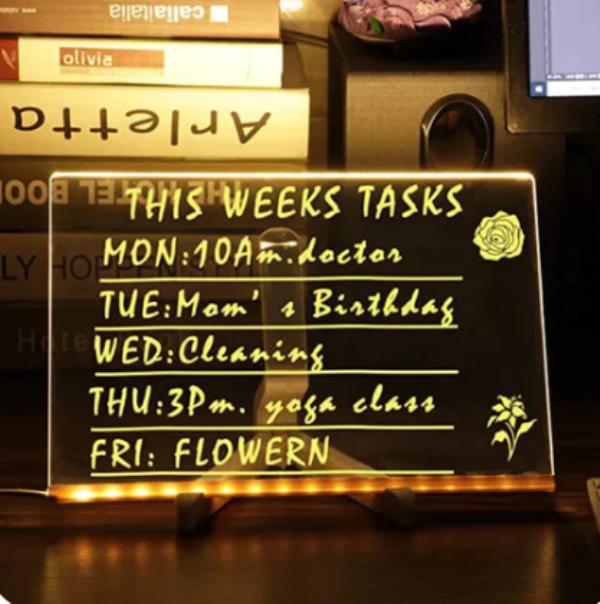 callaitalia
olivia
Arletta
THE HOTEL BOO
LY HOPPEN
Hote
THIS WEEKS TASKS
MON:10Am.doctor
TUE:Mom's Birthday
WED:Cleaning
THU:3Pm. yoga class
FRI: FLOWERN